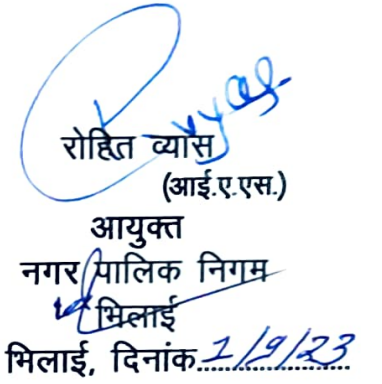 रोहित व्यास
(आई.ए.एस.)
आयुक्त
नगर पालिक निगम
भिलाई
भिलाई, दिनांक 1/9/23